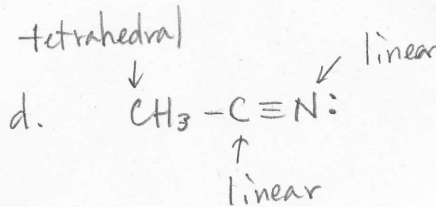 tetrahedral
linear
d. CH₃-C≡N:
linear